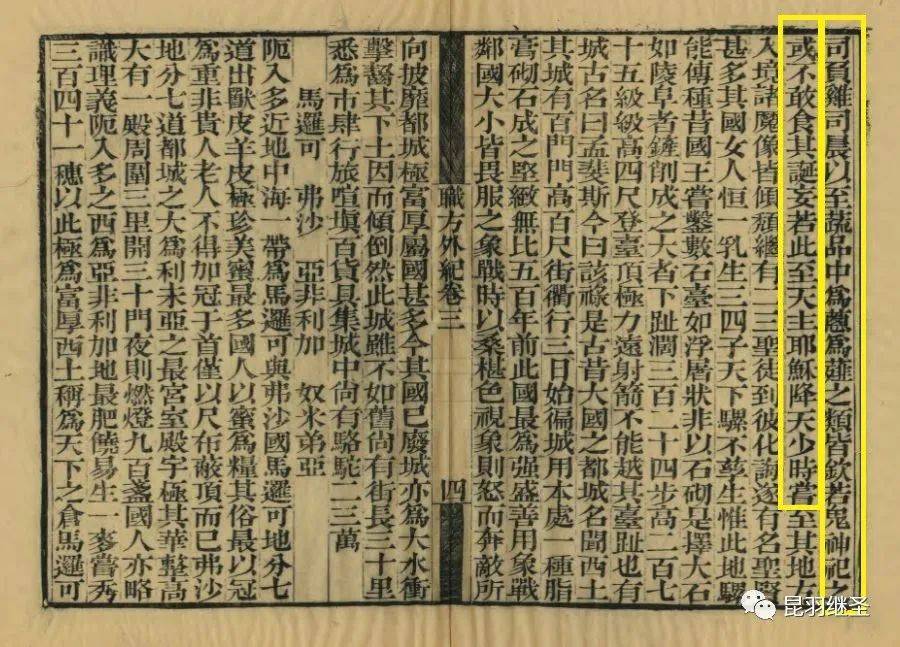 司負雞司晨以至蔬品中爲蔥爲薤之類皆欽若鬼神祀
或不敢食其誕妄若此至天主耶穌降天少時嘗至其地方
入境諸魔像皆傾頹繼有二三聖徒到彼化誨遂有名聖賢
甚多其國女人恒一乳生三四子天下騾不孳生惟此地騾
能傳種昔國王嘗鑿數石臺如浮屠狀非以石砌是擇大石
如陵阜者鏟削成之大者下趾濶三百二十四步高二百七
十五級級高四尺登臺頂極力遠射箭不能越其臺趾也有
城古名曰孟斐斯今曰該祿是古昔大國之都城名聞西土
其城有百門門高百尺街衢行三日始徧城用本處一種脂
膏砌石成之堅緻無比五百年前此國最爲强盛善用象戰
鄰國大小皆畏服之象戰時以桑椹色視象則怒而奔敵所
職方外紀卷三 四
向披靡都城極富厚屬國甚多今其國已廢城亦爲大水衝
擊齧其下土因而傾倒然此城雖不如舊尙有街長三十里
悉爲市肆行旅喧塡百貨具集城中尙有駱駝二三萬
馬邏可 弗沙 亞非利加 奴米弟亞
阨入多近地中海一帶爲馬邏可與弗沙國馬邏可地分七
道出獸皮羊皮極珍美蜜最多國人以蜜爲糧其俗最以冠
爲重非貴人老人不得加冠于首僅以尺布蔽頂而已弗沙
地分七道都城之大爲利未亞之最宮室殿宇極其華整高
大有一殿周圍三里開三十門夜則燃燈九百盞國人亦略
識理義阨入多之西爲亞非利加地最肥饒易生一麥嘗秀
三百四十一穗以此極爲富厚西土稱爲天下之倉馬邏可
昆羽继圣